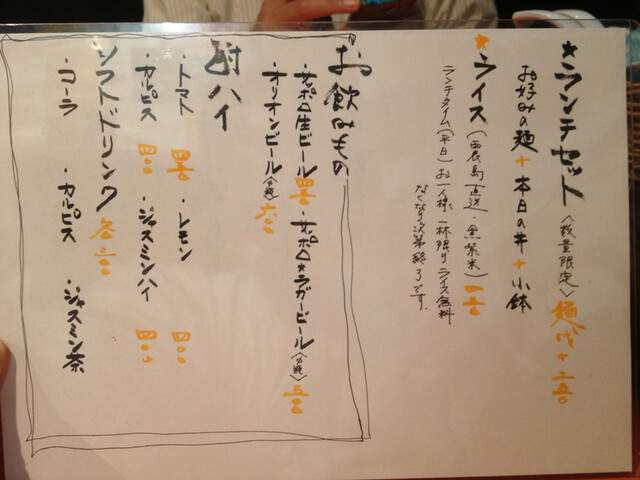 ★ランチセット〈数量限定〉麺代+二五〇
お好みの麺+本日の丼+小鉢
★ライス(西表島直送・黒紫米)一五〇
ランチタイム(平日)お一人様一杯限りライス無料
なくなり次第終了です。
お飲みもの
・サッポロ生ビール 四五〇 ・サッポロ★ラガービール〈中瓶〉五五〇
・オリオンビール〈中瓶〉六〇〇
酎ハイ
・トマト 四五〇 ・レモン 四〇〇
・カルピス 四〇〇 ・ジャスミンハイ 四〇〇
ソフトドリンク 各二〇〇
・コーラ ・カルピス ・ジャスミン茶